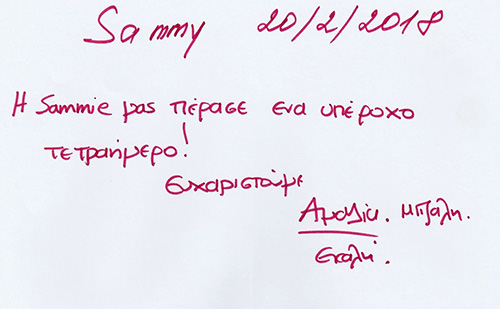 Sammy 20/2/2018
Η Sammie μας πέρασε ενα υπέροχο
τετραήμερο!
Ευχαριστούμε
Αμαλία. Μπζαλη.
Εκαλή.